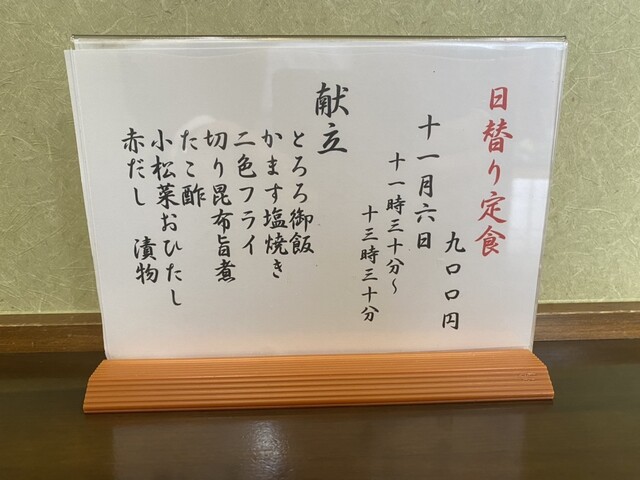 日替り定食
九〇〇円
十一月六日
十一時三十分～
十三時三十分
献立
とろろ御飯
かます塩焼き
二色フライ
切り昆布旨煮
たこ酢
小松菜おひたし
赤だし 漬物